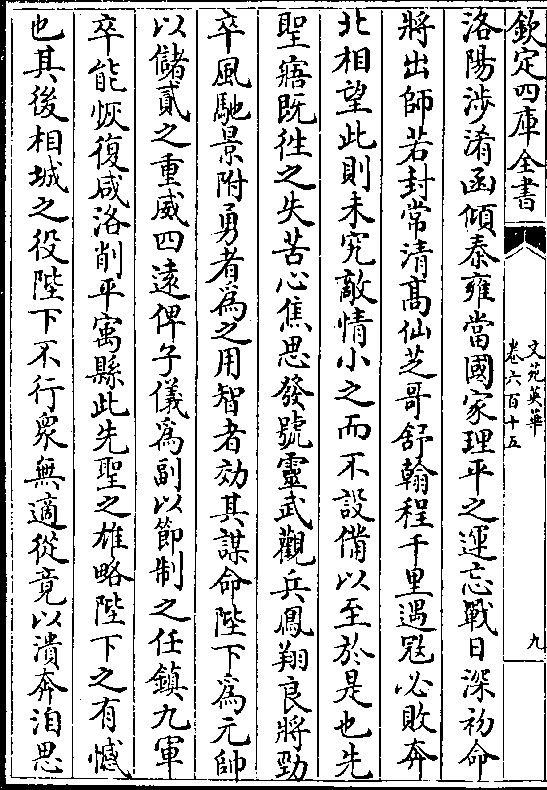 欽定四庫全書
文苑英華
卷六百十五
九
洛陽涉淆函傾秦雍當國家理平之運忘戰日深初命
將出師若封常清髙仙芝哥舒翰程千里遇冦必敗奔
北相望此則未究敵情小之而不設備以至於是也先
聖寤既徃之失苦心焦思發號靈武觀兵鳳翔良將勁
卒風馳景附勇者為之用智者効其謀命陛下為元帥
以儲貳之重威四遠俾子儀為副以節制之任鎮九軍
卒能恢復咸洛削平寓縣此先聖之雄略陛下之有憾
也其後相城之役陛下不行衆無適從竟以潰奔洎思